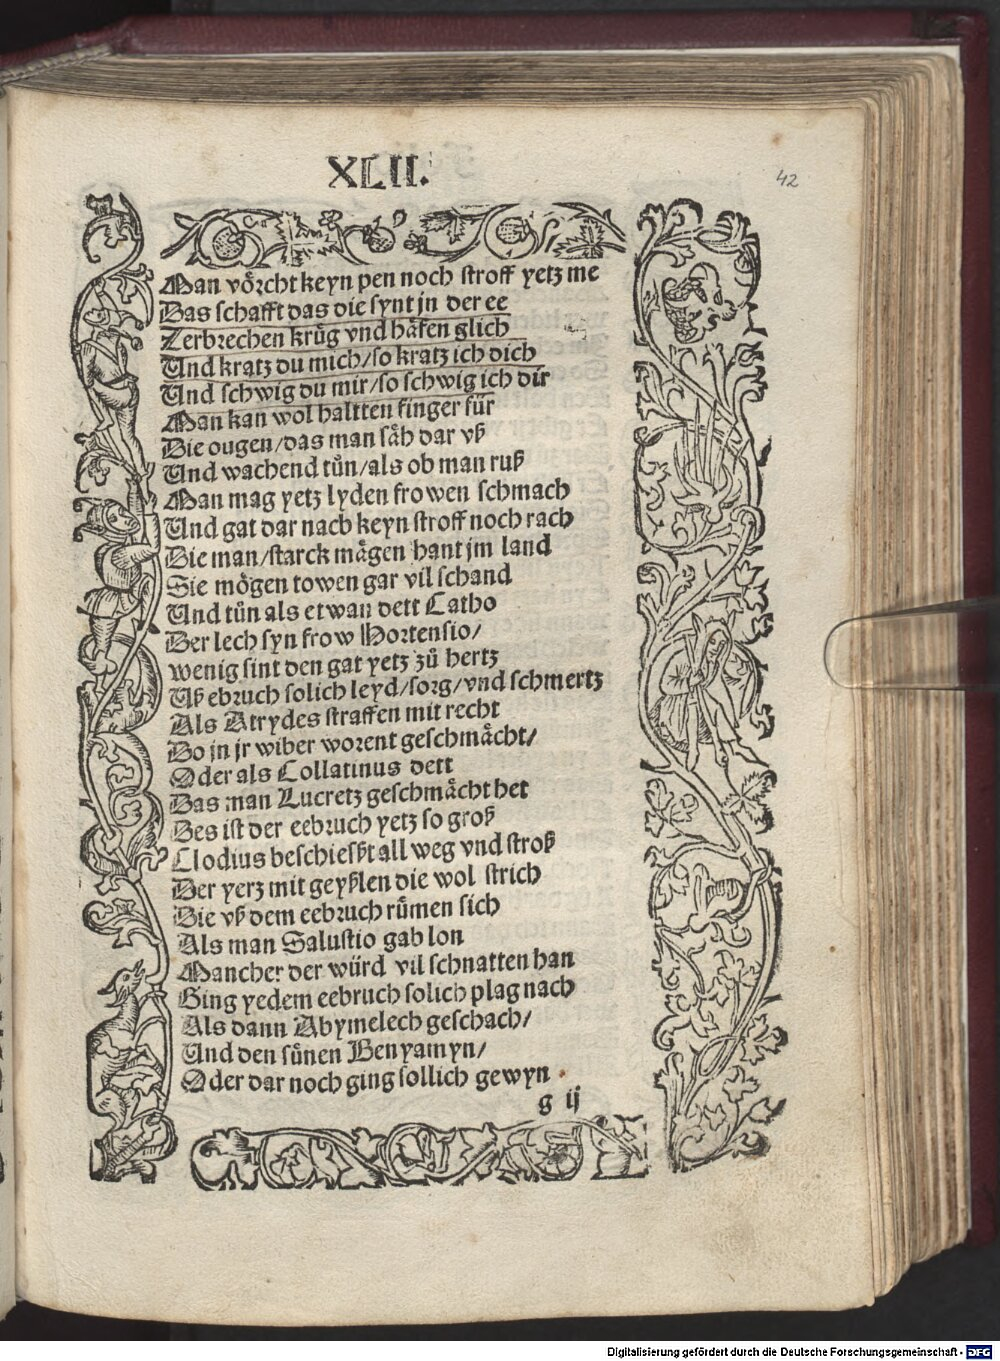 XLII.
42
Man vörcht keyn pen noch stroff yetz me
Das schafft das die synt jn der ee
Zerbrechen krüg vnd häfen glich
Und kratz du mich/so kratz ich dich
Und schwig du mir/so schwig ich dir
Man kan wol haltten finger für
Die ougen/das man säh dar vß
Und wachend tůn/als ob man ruß
Man mag yetz lyden frowen schmach
Und gat dar nach keyn stroff noch rach
Die man/starck mägen hant jm land
Sie mögen towen gar vil schand
Und tůn als etwan dett Catho
Der lech syn frow Hortensio/
wenig sint den gat yetz zů hertz
Uß ebruch solich leyd/sorg/vnd schmertz
Als Atrydes straffen mit recht
Do jn jr wiber worent geschmächt/
Oder als Collatinus dett
Das man Lucretz geschmächt het
Des ist der eebruch yetz so groß
Clodius beschießt all weg vnd stroß
Der yetz mit geyßlen die wol strich
Die vß dem eebruch rümen sich
Als man Salustio gab lon
Mancher der würd vil schnatten han
Ging yedem eebruch solich plag nach
Als dann Abymelech geschach/
Und den sünen Benyamyn/
Oder dar noch ging sollich gewyn
g ij
Digitalisierung gefördert durch die Deutsche Forschungsgemeinschaft - DFG